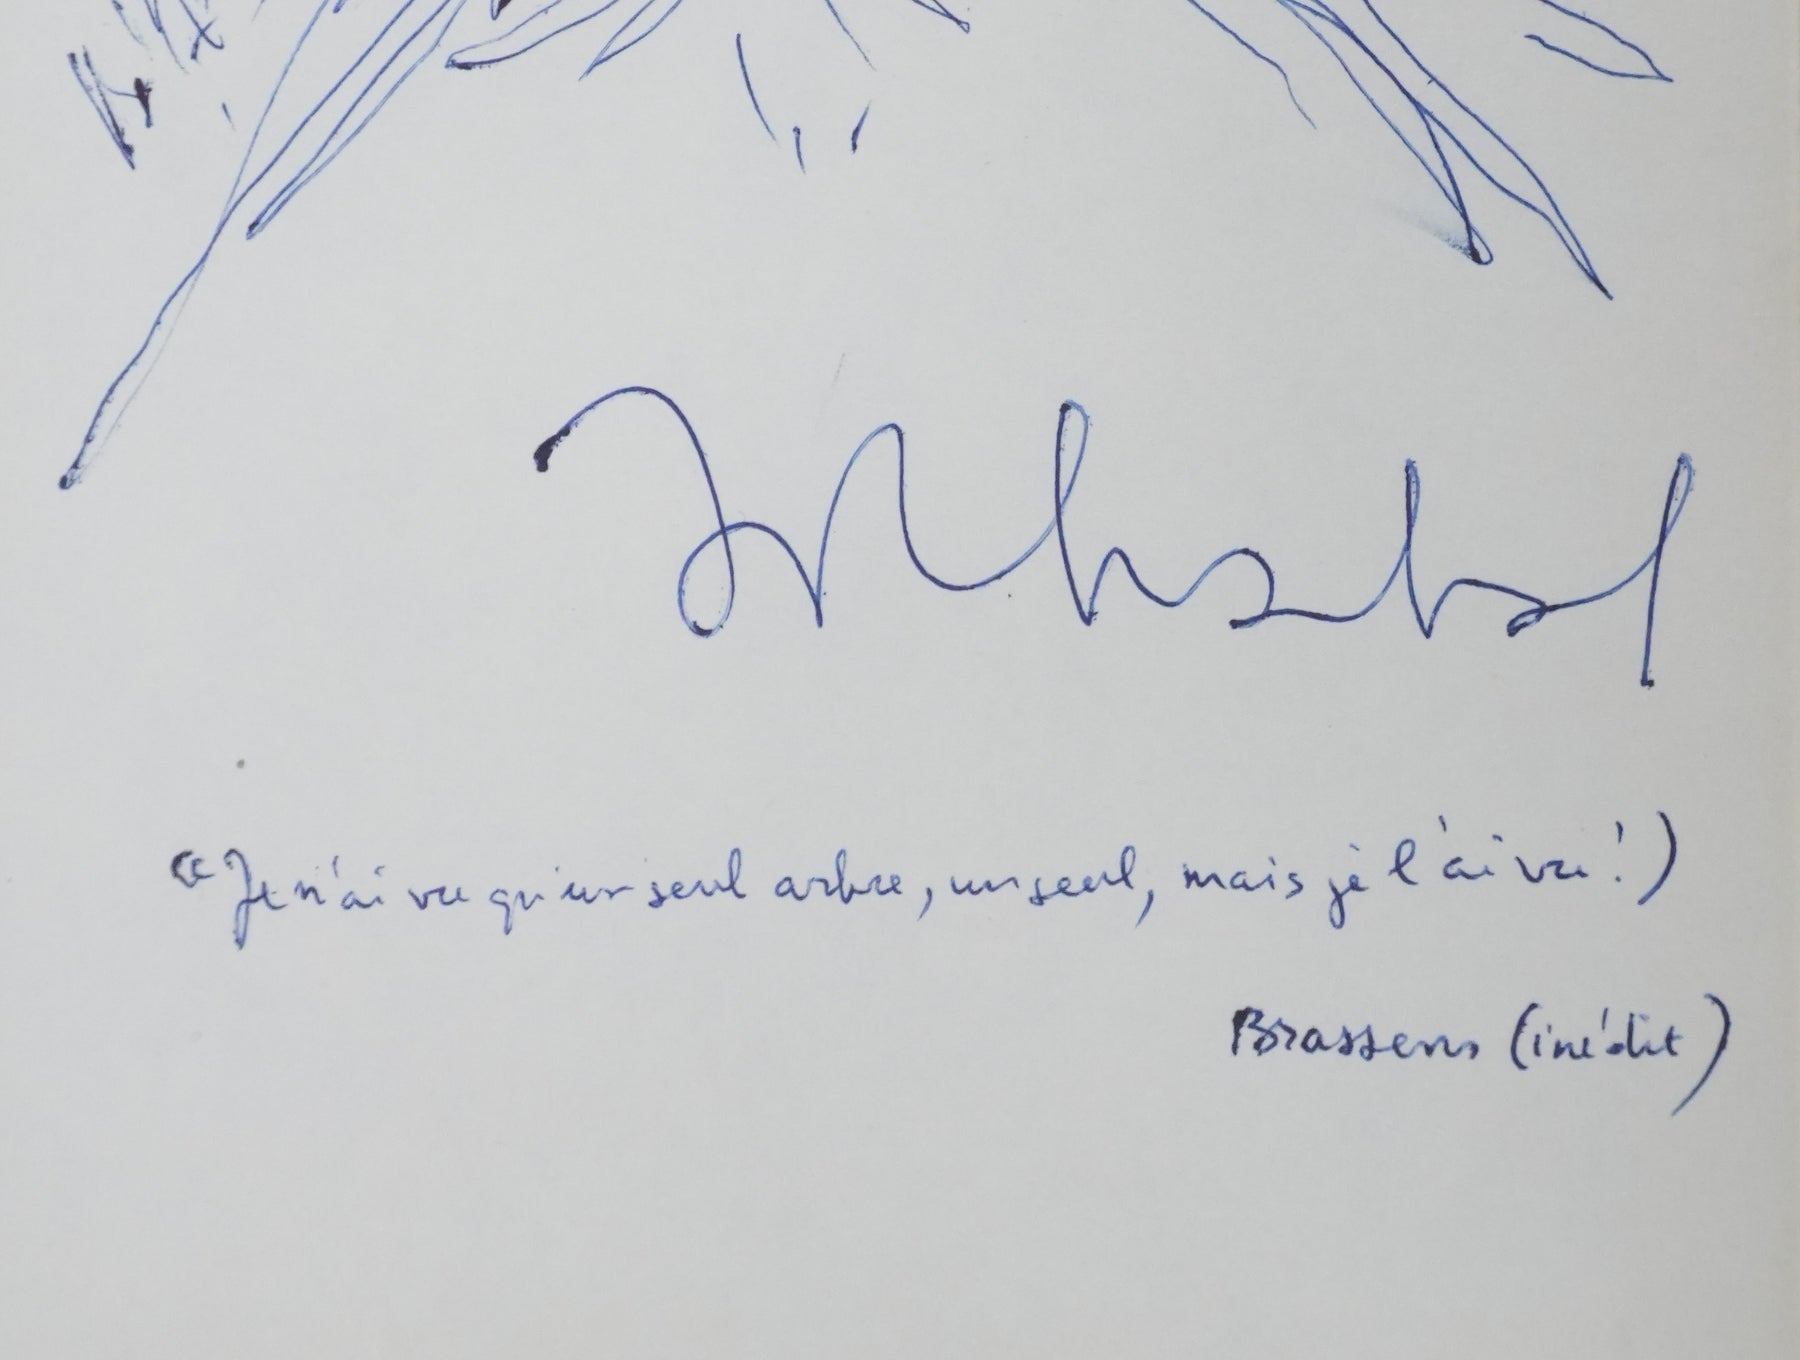 « Je n'ai vu qu'un seul arbre, un seul, mais je l'ai vu ! )
Brassens (inédit)